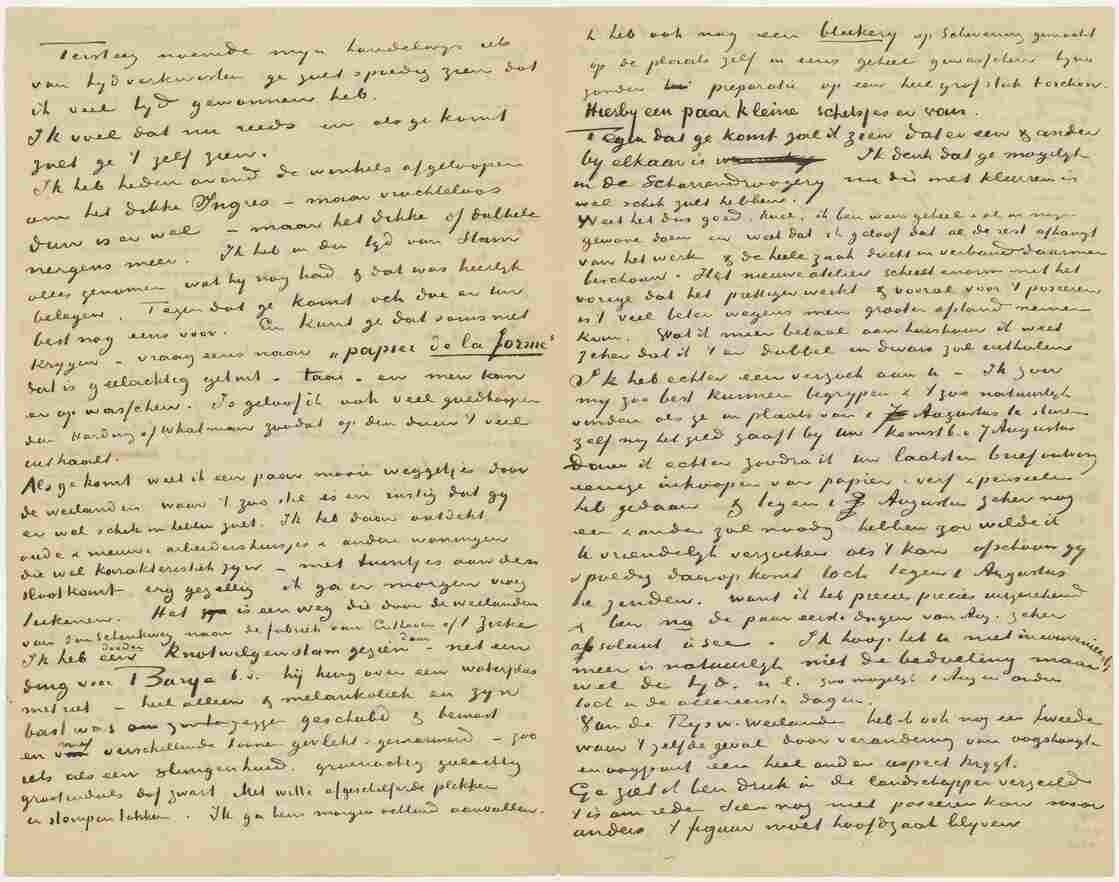 Tersteeg noemde mijn handelwijs iets
van tijdverkwisten ge zult spoedig zien dat
ik veel tijd gewonnen heb.
Ik voel dat nu reeds en als ge komt
zult ge 't zelf zien.
Ik heb heden avond de winkels afgeloopen
om het dikke Ingres – maar vruchteloos
Dun is er wel – maar het dikke of dubbele
nergens meer. Ik heb in der tijd van Stam
alles genomen wat hij nog had & dat was heerlijk
belegen. Tegen dat ge komt och doe er uw
best nog eens voor. En kunt ge dat soms niet
krijgen – vraag eens naar „papier de la forme"
dat is geelachtig getint – taai – en men kan
er op wasschen. Is geloof ik ook veel goedkooper
dan Harding of Whatman zoodat op den duur 't veel
uithaalt.
Als ge komt weet ik een paar mooie weggetjes door
de weilanden waar 't zoo stil is en rustig dat gij
er wel schik in hebben zult. Ik heb daar ontdekt
oude & nieuwe arbeidershuisjes & andere woningen
die wel karakteristiek zijn – met tuintjes aan den
slootkant erg gezellig ik ga er morgen vroeg
teekenen. Het is een weg die door de weilanden
van den Schenkweg naar de fabriek van Enthoven of 't Zieke
Ik heb een dooden knotwilgenstam gezien daar – net een
ding voor Barye b.v. hij hing over een waterplas
met riet – heel alleen & melankoliek en zijn
bast was om zoo te zeggen geschubd & bemost
en met verschillende toonen gevlekt – gemarmerd – zoo
iets als een slangenhuid. groenachtig geelachtig
grootendeels dof zwart. Met witte afgeschilferde plekken
en stompen takken. Ik ga hem morgen ochtend aanvallen.
Ik heb ook nog een bleekerij op Schevening gemaakt
op de plaats zelf in eens geheel gewasschen bijna
zonder preparatie op een heel grof stuk torchon.
Hierbij een paar kleine schetsjes er van.
Tegen dat ge komt zal ik zien dat er een & ander
bij elkaar is Ik denk dat ge mogelijk
in de Scharrendroogerij nu die met kleuren is
wel schik zult hebben.
Weet het dus goed, kerel, ik ben weer geheel & al in mijn
gewone doen en weet dat ik geloof dat al de rest afhangt
van het werk & de heele zaak direkt in verband daarmee
beschouw. Het nieuwe atelier scheelt enorm met het
vorige dat het prettiger werkt & vooral voor 't poseeren
is 't veel beter wegens men grooter afstand nemen
kan. Wat ik meer betaal aan huishuur ik weet
zeker dat ik 't er dubbel en dwars zal uithalen
Ik heb echter een verzoek aan u – Ik zou
mij zoo best kunnen begrijpen & 't zoo natuurlijk
vinden als ge in plaats van 1 Augustus te sturen
zelf mij het geld gaaft bij uw komst b.v. 7 Augustus
Daar ik echter zoodra ik uw laatsten brief ontving
eenige inkoopen van papier & verf & penseelen
heb gedaan & tegen 1 Augustus zeker nog
een & ander zal noodig hebben zoo wilde ik
U vriendelijk verzoeken als 't kan ofschoon gij
spoedig daarop komt toch tegen 1 Augustus
te zenden. want ik heb precies precies uitgerekend
& ben na de paar eerste dagen van Aug. zeker
absoluut à sec. Ik hoop het u niet inconvenieert,
meer is natuurlijk niet de bedoeling maar
wel de tijd. n.l. zoo mogelijk 1 Aug. en anders
toch in de allereerste dagen.
Van de Rijsw. weilanden heb ik ook nog een tweede
waar 't zelfde geval door verandering van oogshoogte
en oogpunt een heel ander aspect krijgt.
Ge ziet ik ben druk in de landschappen verzeild
't is om reden Sien nog niet poseeren kan maar
anders 't figuur moet hoofdzaak blijven